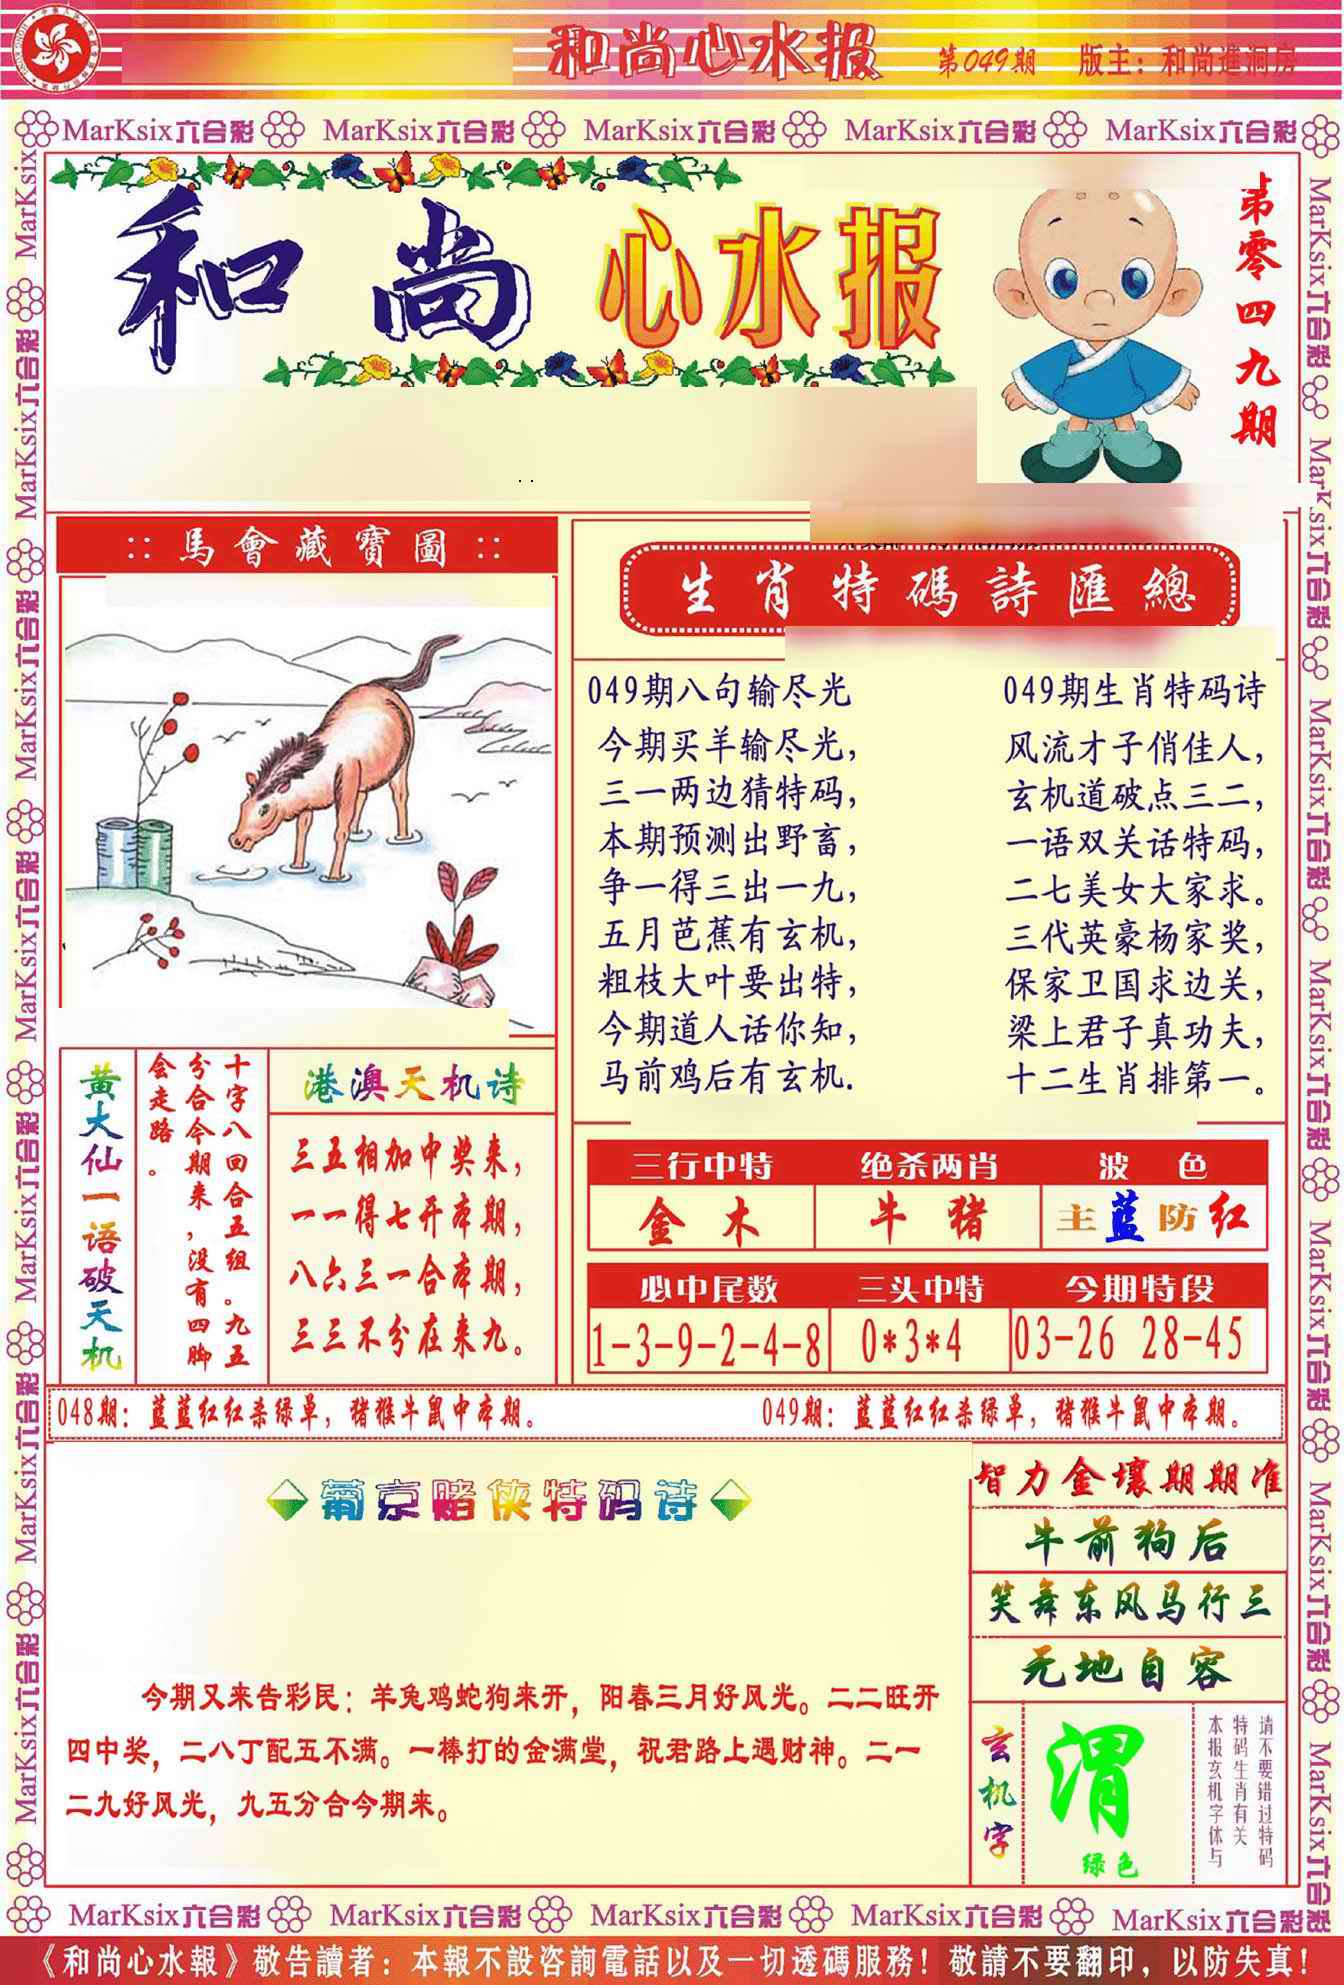 和尚心水报 第049期 版主：和尚進洞房
MarKsix六合彩 MarKsix六合彩 MarKsix六合彩 MarKsix六合彩 MarKsix六合彩
和尚心水报
第零四九期
:: 馬會藏寶圖 ::
生肖特碼詩匯總
049期八句输尽光
今期买羊输尽光，
三一两边猜特码，
本期预测出野畜，
争一得三出一九，
五月芭蕉有玄机，
粗枝大叶要出特，
今期道人话你知，
马前鸡后有玄机.
049期生肖特码诗
风流才子俏佳人，
玄机道破点三二，
一语双关话特码，
二七美女大家求。
三代英豪杨家奖，
保家卫国求边关，
梁上君子真功夫，
十二生肖排第一。
黄大仙一语破天机
十字八回合五组。九五
分合今期来，没有四脚
会走路。
港澳天机诗
三五相加中奖来，
一一得七开本期，
八六三一合本期，
三三不分在来九。
三行中特 绝杀两肖 波色
金木 牛猪 主蓝防红
必中尾数 三头中特 今期特段
1-3-9-2-4-8 0*3*4 03-26 28-45
048期：蓝蓝红红杀绿单，猪猴牛鼠中本期。 049期：蓝蓝红红杀绿单，猪猴牛鼠中本期。
葡京赌侠特码诗
今期又来告彩民：羊兔鸡蛇狗来开，阳春三月好风光。二二旺开
四中奖，二八丁配五不满。一棒打的金满堂，祝君路上遇财神。二一
二九好风光，九五分合今期来。
智力金壤期期准
牛前狗后
笑舞东风马行三
无地自容
玄机字
渭
绿色
请不要错过特码
特码生肖有关
本报玄机字体与
MarKsix六合彩 MarKsix六合彩 MarKsix六合彩 MarKsix六合彩 MarKsix六合彩
《和尚心水報》敬告讀者：本報不設咨詢電話以及一切透碼服務！敬請不要翻印，以防失真！